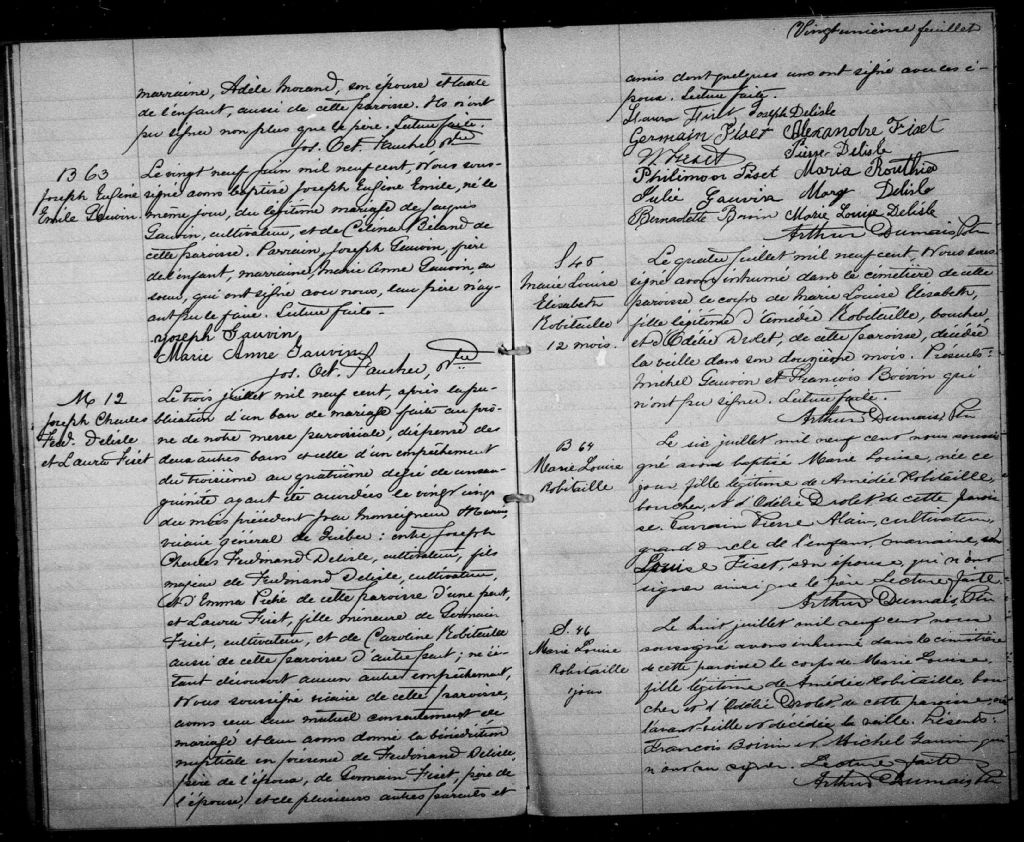 marraine, Adèle Morand, son épouse et tante
de l'enfant, aussi de cette paroisse. Ils n'ont
pu signer non plus que le père. Lecture faite.
Jos. Oct. Faucher, Ptre
B 63
Joseph Eugène
Emile Gauvin
Le vingt neuf juin mil neuf cent, Nous sous-
signé avons baptisé Joseph Eugène Emile, né le
même jour, du légitime mariage de Jacques
Gauvin, cultivateur, et de Célina Béland de
cette paroisse. Parrain, Joseph Gauvin, frère
de l'enfant, marraine, Marie Anne Gauvin, sa
soeur, qui ont signé avec nous, leur père n'ay-
ant pu le faire. Lecture faite.
Joseph Gauvin
Marie Anne Gauvin
Jos. Oct. Faucher, Ptre
M 12
Joseph Charles
Ferd. Delisle
et Laura Fiset
Le trois juillet mil neuf cent, après la pu-
blication d'un ban de mariage faite au prô-
ne de notre messe paroissiale, dispense des
deux autres bans et celle d'un empêchement
du troisième au quatrième degré de consan-
guinité ayant été accordées le vingt cinq
du mois précédent par Monseigneur Marois,
vicaire général de Québec : entre Joseph
Charles Ferdinand Delisle, cultivateur, fils
majeur de Ferdinand Delisle, cultivateur,
et d'Emma Piché de cette paroisse d'une part,
et Laura Fiset, fille mineure de Germain
Fiset, cultivateur, et de Caroline Robitaille
aussi de cette paroisse d'autre part ; ne s'é-
tant découvert aucun autre empêchement,
Nous soussigné vicaire de cette paroisse,
avons reçu leur mutuel consentement de
mariage et leur avons donné la bénédiction
nuptiale en présence de Ferdinand Delisle,
père de l'époux, de Germain Fiset, père de
l'épouse, et de plusieurs autres parents et
Vingtunième feuillet
amis dont quelques uns ont signé avec les é-
poux. Lecture faite.
Laura Fiset Joseph Delisle
Germain Fiset Alexandre Fiset
Pierre Delisle
Philimon Fiset Maria Routhier
Julie Gauvin Mary Delisle
Bernadette Boivin Marie Louise Delisle
Arthur Dumais, Ptre
S 45
Marie Louise
Elisabeth
Robitaille
12 mois.
Le quatre juillet mil neuf cent, Nous sous-
signé avons inhumé dans le cimetière de cette
paroisse le corps de Marie Louise Elisabeth,
fille légitime d'Émédée Robitaille, boucher,
et d'Odélie Drolet, de cette paroisse, décédée
la veille dans son douzième mois. Présents :
Michel Gauvin et François Boivin qui
n'ont pu signer. Lecture faite.
Arthur Dumais, Ptre
B 64
Marie Louise
Robitaille
Le six juillet mil neuf cent nous soussi
gné avons baptisé Marie Louise, née ce
jour fille légitime de Amédée Robitaille,
boucher, et d'Odélie Drolet de cette parois
se. Parrain Pierre Alain, cultivateur,
grand oncle de l'enfant, marraine,
Louise Fiset, son épouse, qui n'ont
signer ainsi que le père Lecture faite.
Arthur Dumais, Ptre
S. 46
Marie Louise
Robitaille
1 jour
Le huit juillet mil neuf cent nous
soussigné avons inhumé dans le cimetière
de cette paroisse le corps de Marie Louise,
fille légitime de Amédée Robitaille, bou-
cher et d'Odélie Drolet, de cette paroisse, née
l'avant veille et décédée la veille. Présents :
François Boivin et Michel Gauvin qui
n'ont su signer. Lecture faite
Arthur Dumais Ptre